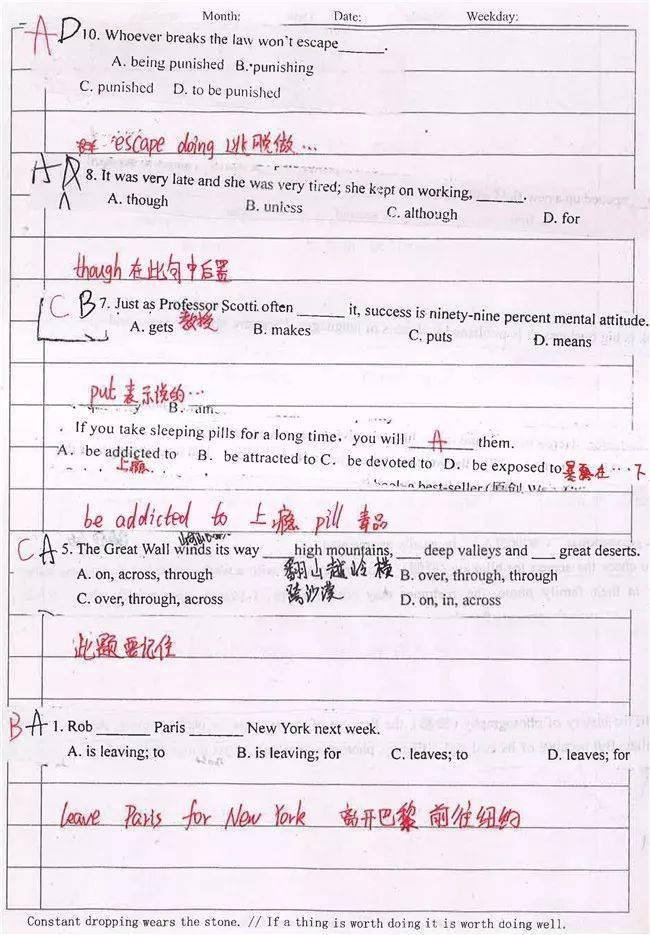 Month: Date: Weekday:
A D 10. Whoever breaks the law won't escape______.
A. being punished B. punishing
C. punished D. to be punished
escape doing 逃脱做…
A D 8. It was very late and she was very tired; she kept on working, ______.
A. though B. unless C. although D. for
though 在此句中后置
C B 7. Just as Professor Scotti often ______ it, success is ninety-nine percent mental attitude.
教授
A. gets B. makes C. puts D. means
put 表示说的…
If you take sleeping pills for a long time, you will A them.
A. be addicted to B. be attracted to C. be devoted to D. be exposed to 暴露在…下
上瘾
be addicted to 上瘾 pill 毒品
C A 5. The Great Wall winds its way ____ high mountains, ____ deep valleys and ____ great deserts.
A. on, across, through 翻山越岭横 B. over, through, through
C. over, through, across 跨沙漠 D. on, in, across
此题要记住
B A 1. Rob________ Paris ________ New York next week.
A. is leaving; to B. is leaving; for C. leaves; to D. leaves; for
leave Paris for New York 离开巴黎前往纽约
Constant dropping wears the stone. // If a thing is worth doing it is worth doing well.